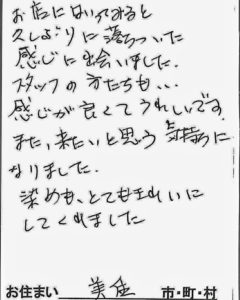 お店にはいってみると
久しぶりに落ちついた
感じに出会いました.
スタッフの方たちも...
感じが良くてうれしいです.
また,来たいと思う気持ちに
なりました.
染めも、とてもきれいに
してくれました
お住まい 美 市・町・村